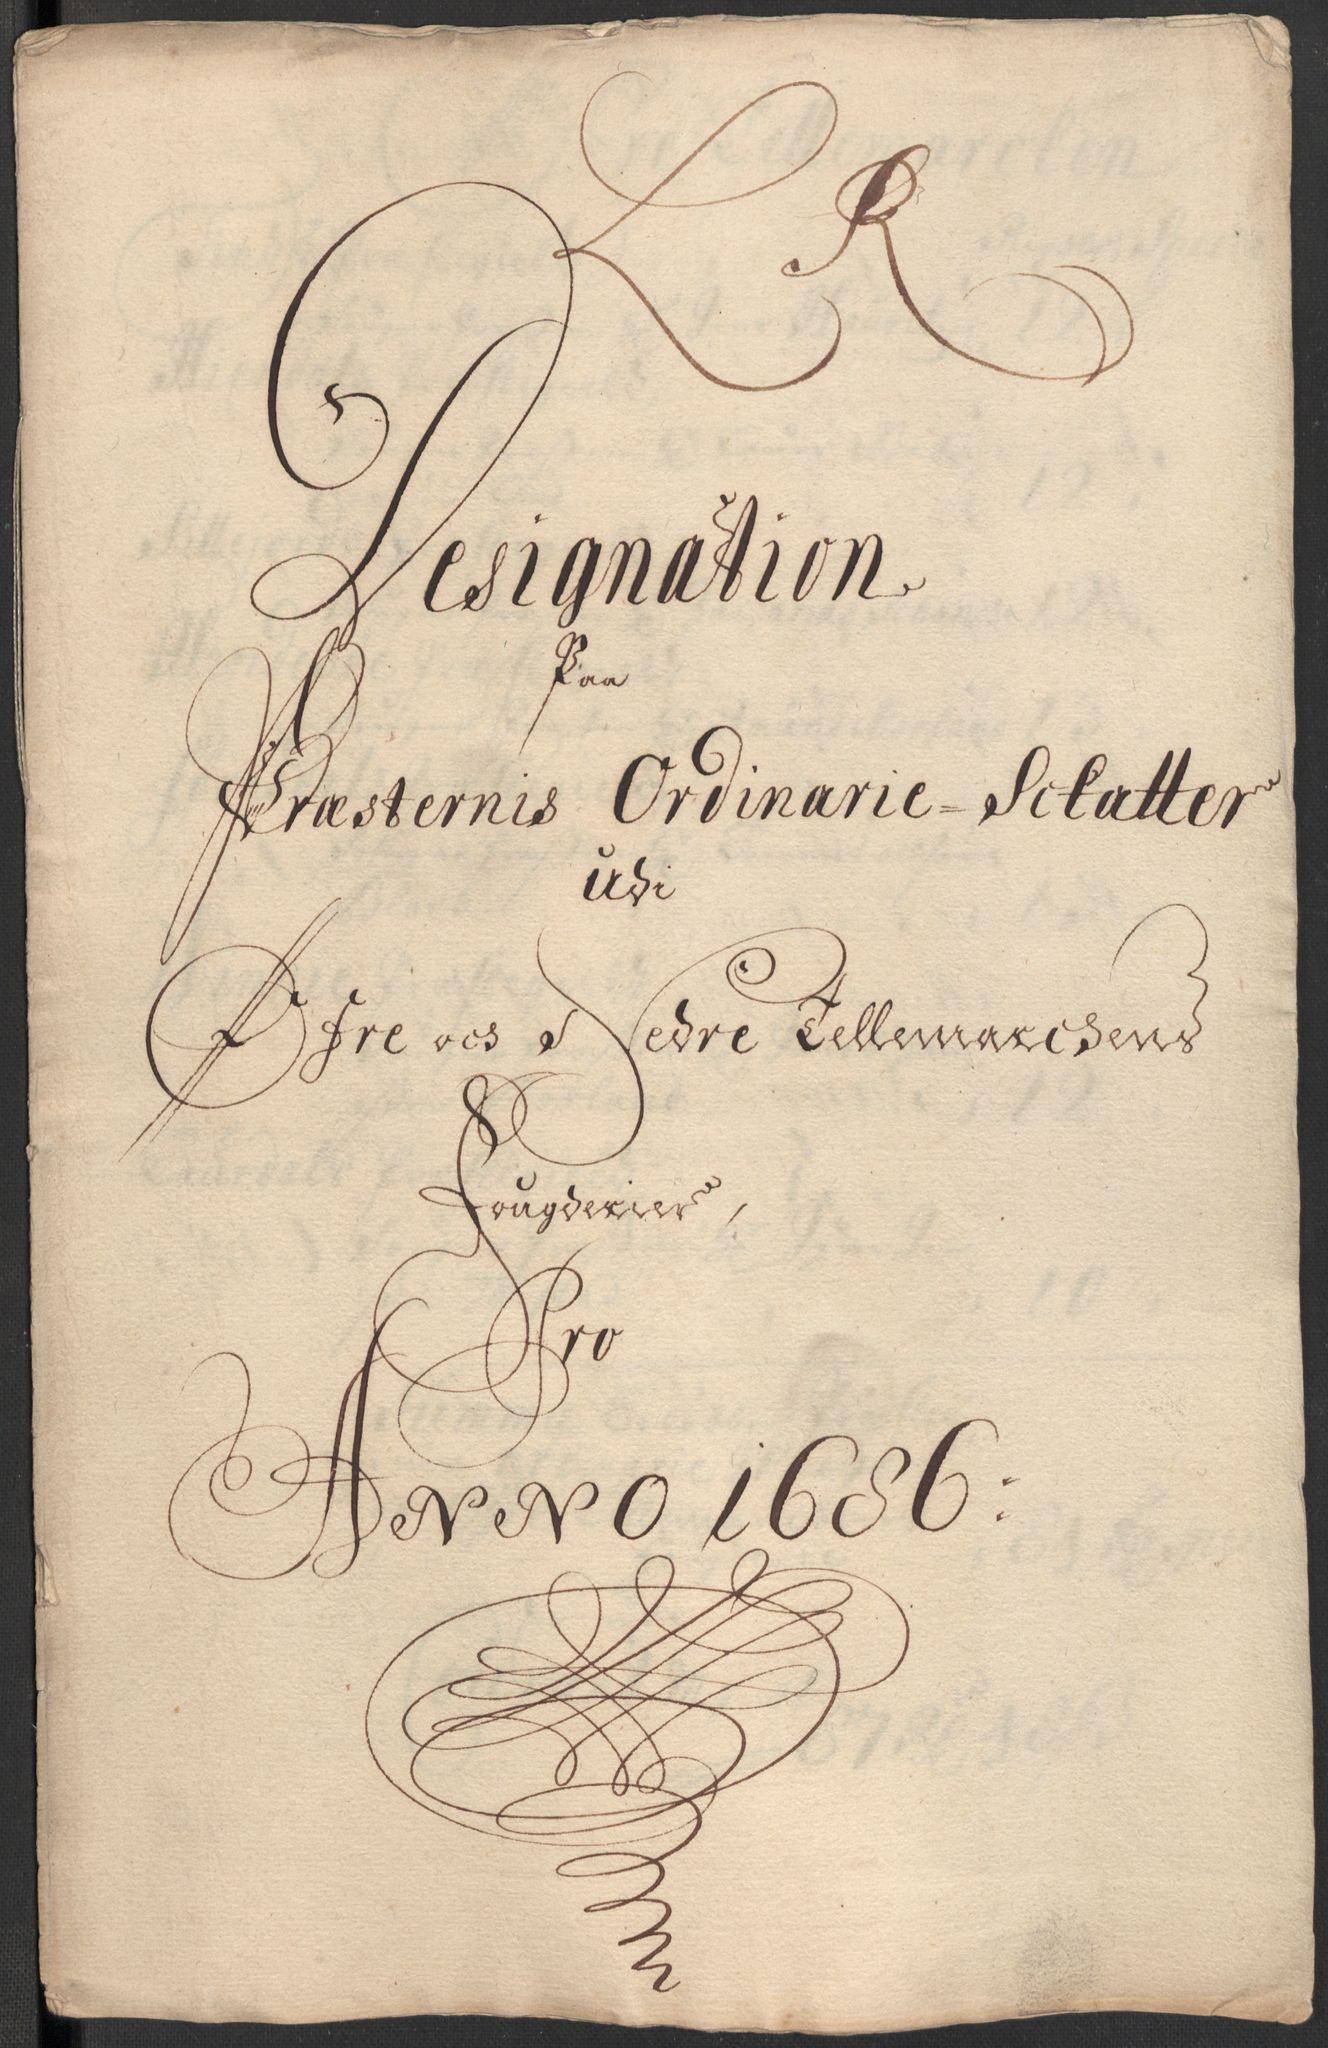 L R
Designation
Paa
Præsternis Ordinarie=Schatter
Udi
Øfre och Nedre Tellemarchens
Fougderier,
Pro
ANNO 1686: